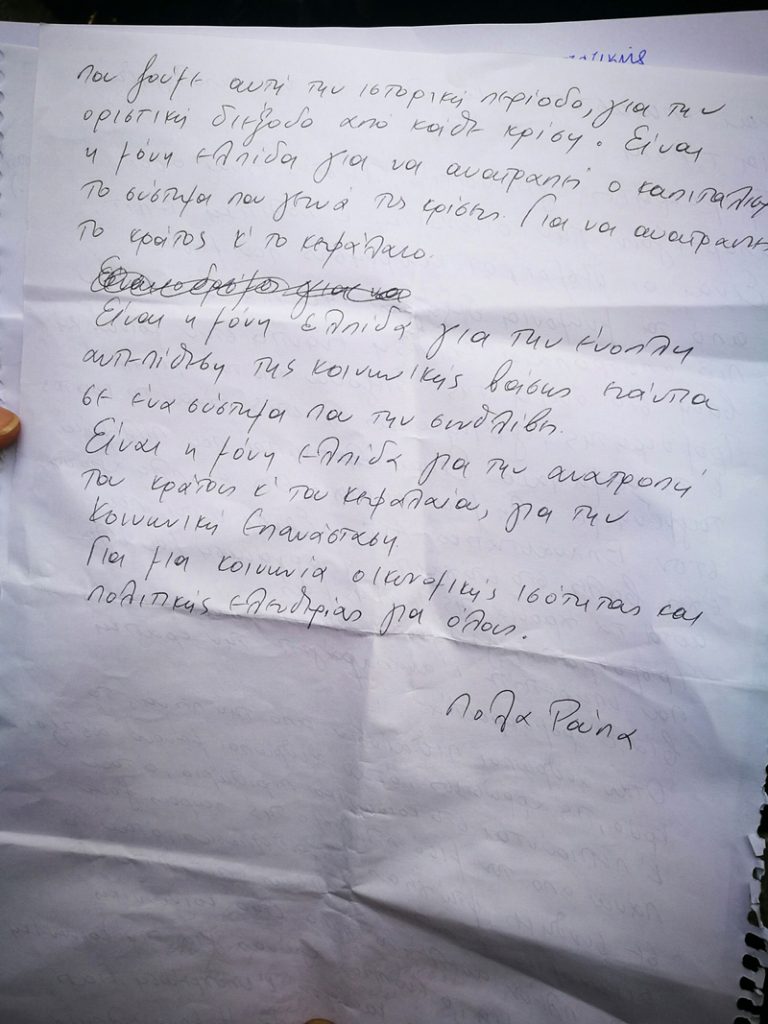 που ζούμε αυτή την ιστορική περίοδο, για την
οριστική διέξοδο από κάθε κρίση. Είναι
η μόνη ελπίδα για να ανατραπεί ο καπιταλισμ
το σύστημα που γεννά τις κρίσεις. Για να ανατραπεί
το κράτος κ' το κεφάλαιο.
Είναι η μόνη ελπίδα για την ένοπλη
αντεπίθεση της κοινωνικής βάσης ενάντια
σε ένα σύστημα που την συνθλίβει.
Είναι η μόνη ελπίδα για την ανατροπή
του κράτους κ' του κεφαλαίου, για την
Κοινωνική Επανάσταση
Για μια κοινωνία οικονομικής ισότητας και
πολιτικής ελευθερίας για όλους.
Πόλα Ρούπα